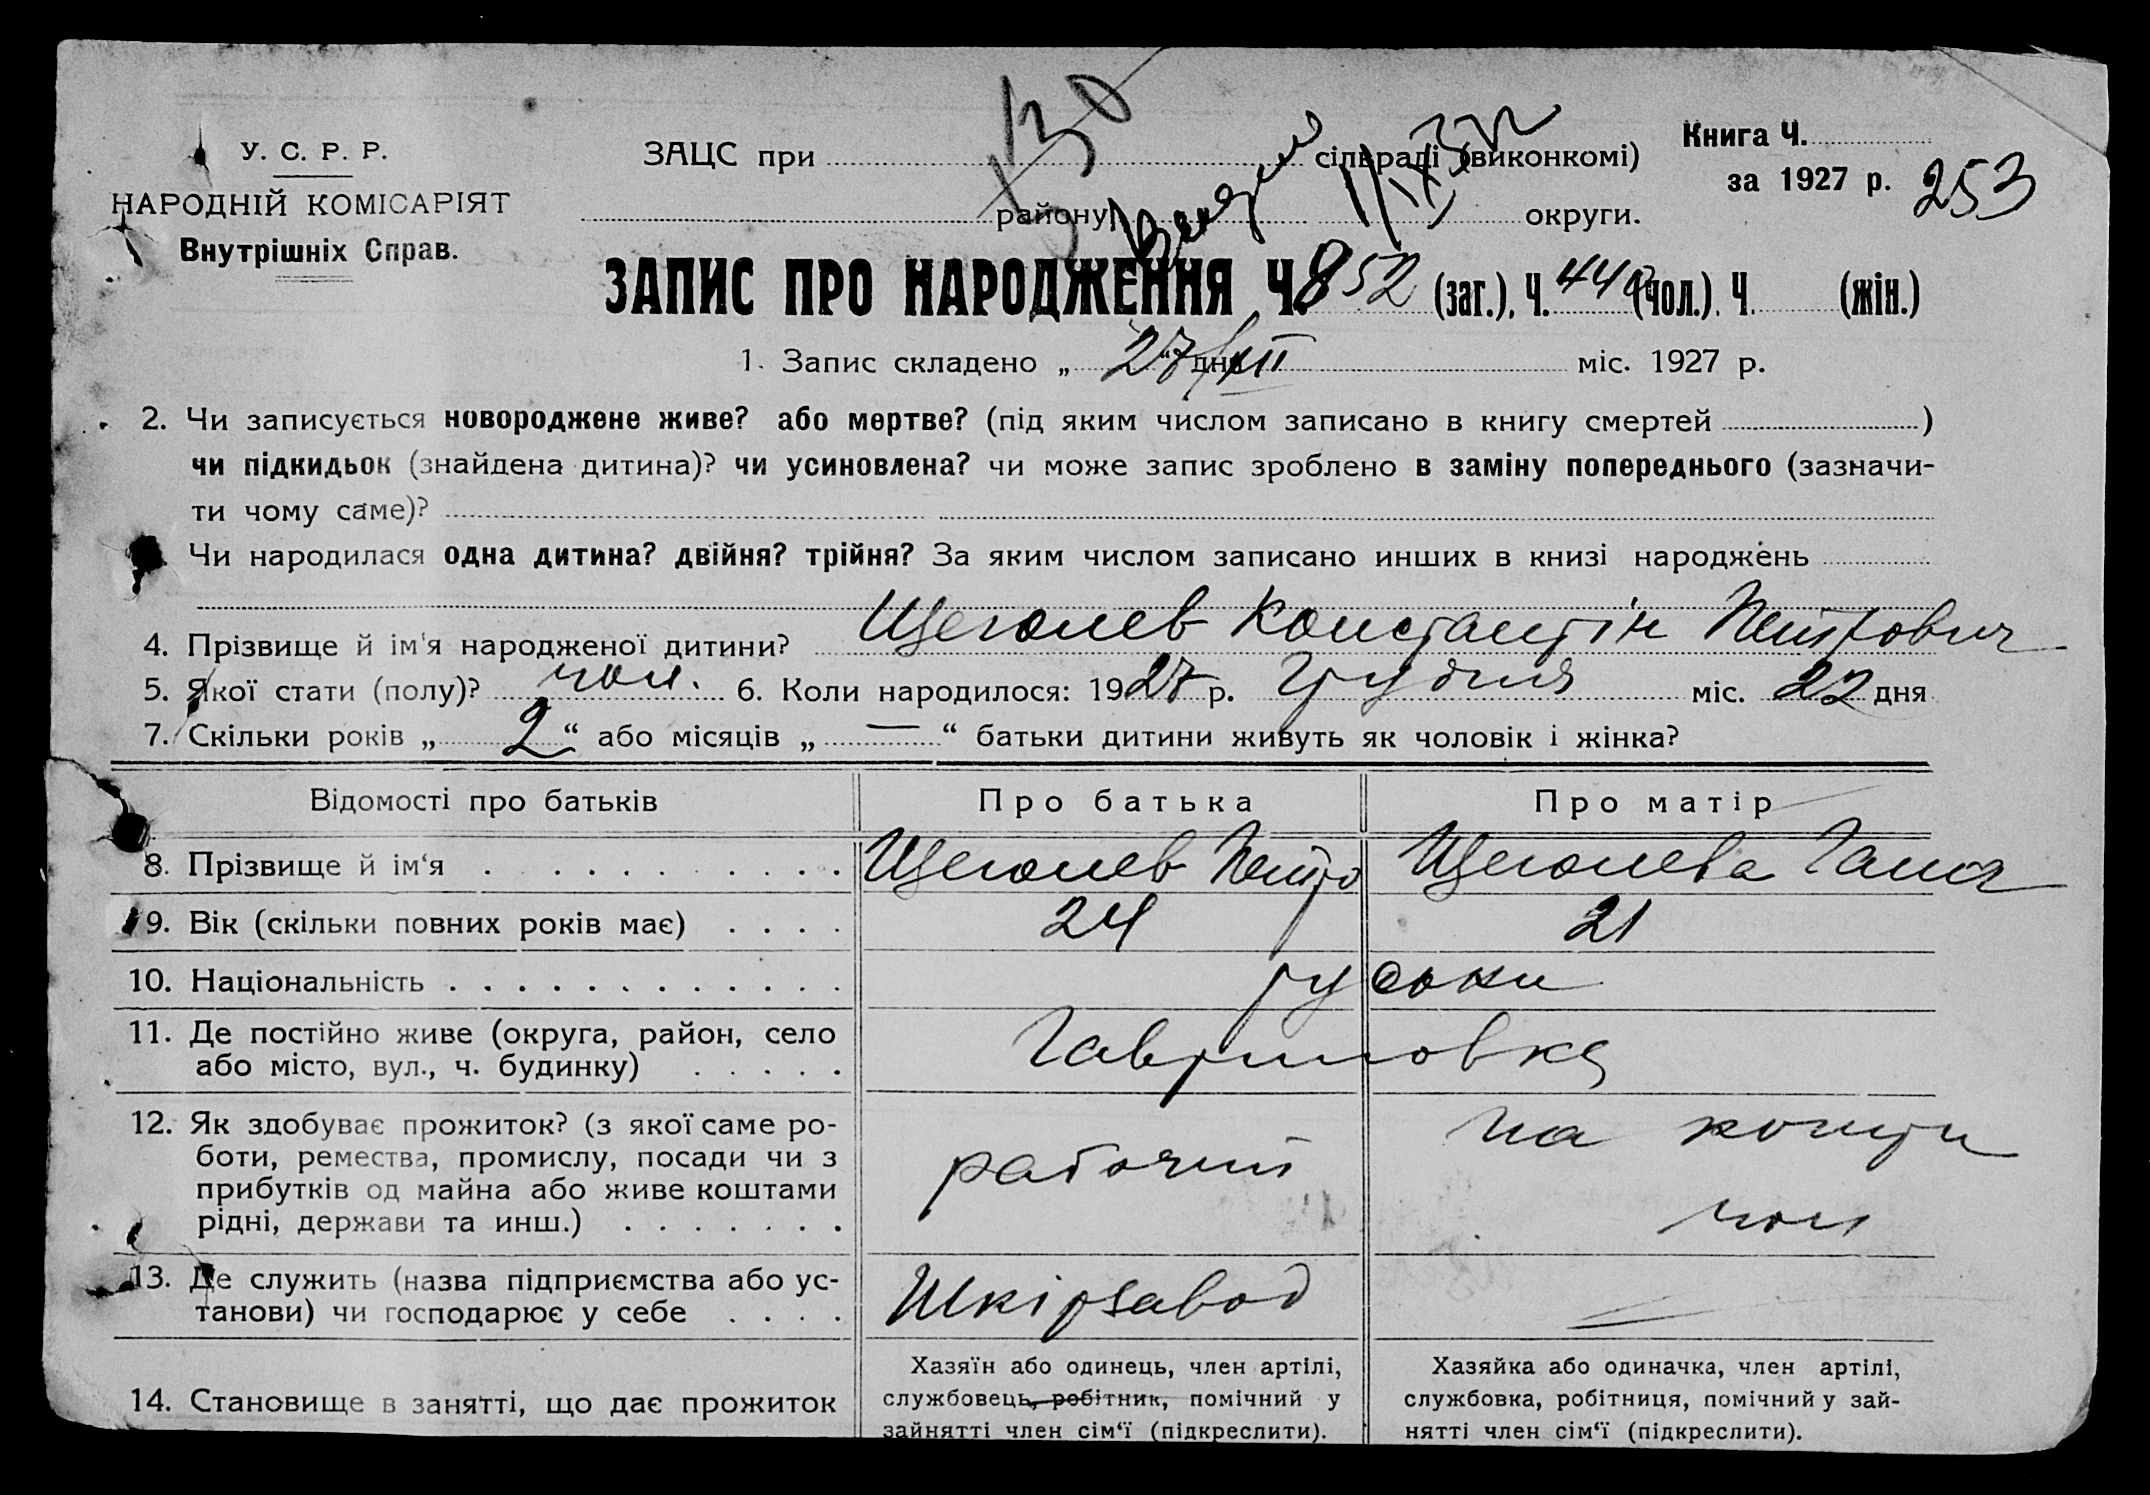 У. С. Р. Р.
НАРОДНІЙ КОМІСАРІЯТ
Внутрішніх Справ.
130
ЗАЦС при сільраді (виконкомі)
району округи.
Книга Ч.
за 1927 р. 253
ЗАПИС ПРО НАРОДЖЕННЯ Ч. 852 (заг.), Ч. 440 (чол.), Ч. (жін.)
1. Запис складено „27“ дня XII міс. 1927 р.
2. Чи записується новороджене живе? або мертве? (під яким числом записано в книгу смертей )
чи підкидьок (знайдена дитина)? чи усиновлена? чи може запис зроблено в заміну попереднього (зазначи-
ти чому саме)?
Чи народилася одна дитина? двійня? трійня? За яким числом записано инших в книзі народжень
4. Прізвище й ім'я народженої дитини? Щеголев Константін Петрович
5. Якої стати (полу)? чол. 6. Коли народилося: 1927 р. Грудня міс. 22 дня
7. Скільки років „2“ або місяців „—“ батьки дитини живуть як чоловік і жінка?
Відомості про батьків Про батька Про матір
8. Прізвище й ім‘я Щеголев Петро Щеголева Ганна
9. Вік (скільки повних років має) 24 21
10. Національність руськи
11. Де постійно живе (округа, район, село
або місто, вул., ч. будинку) Гавриловка
12. Як здобуває прожиток? (з якої саме ро-
боти, ремества, промислу, посади чи з
прибутків од майна або живе коштами
рідні, держави та инш.) рабочий на кошти чол
13. Де служить (назва підприємства або ус-
танови) чи господарює у себе Шкірзавод —
14. Становище в занятті, що дає прожиток
Хазяїн або одинець, член артілі,
службовець, робітник, помічний у
зайнятті член сім‘ї (підкреслити).
Хазяйка або одиначка, член артілі,
службовка, робітниця, помічний у зай-
нятті член сім‘ї (підкреслити).